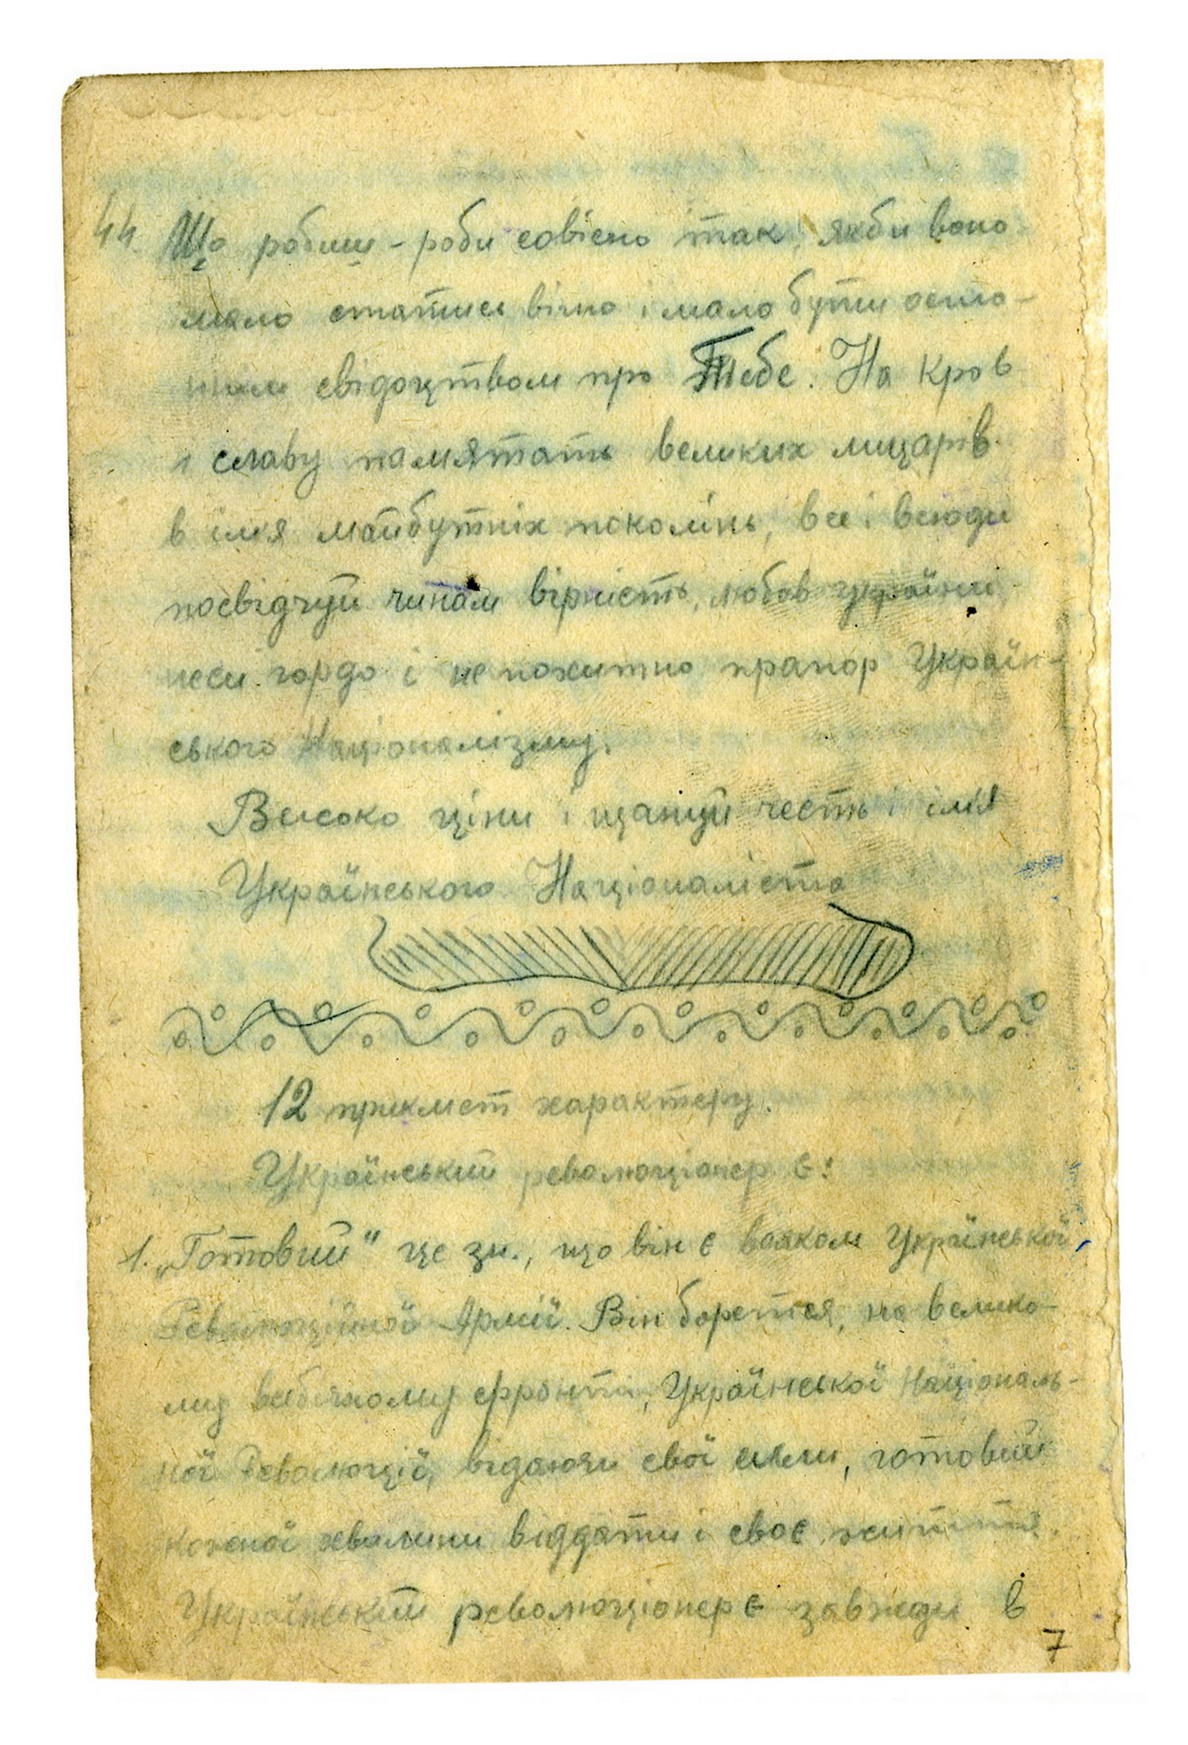 44. Що робиш - роби совісно так, якби воно
мало статися вічно і мало бути остан-
ним свідоцтвом про Тебе. На кров
і славу памятать великих лицарів
в імя майбутніх поколінь, все і всюди
посвідчуй чином вірність, любов україни
неси гордо і не похитно прапор Україн-
ського Націоналізму.
Високо ціни і щануй честь і імя
Українського Націоналіста
12 прикмет характеру.
Український революціонер є:
1. „Готовий" це зн., що він є вояком Української
Революційної Армії. Він бореться, на велико-
му фронті, Української Національ-
ної Революції, віддаючи свої сили, готовий
кожної хвилини віддати і своє життя.
Український революціонер є завжди в
7